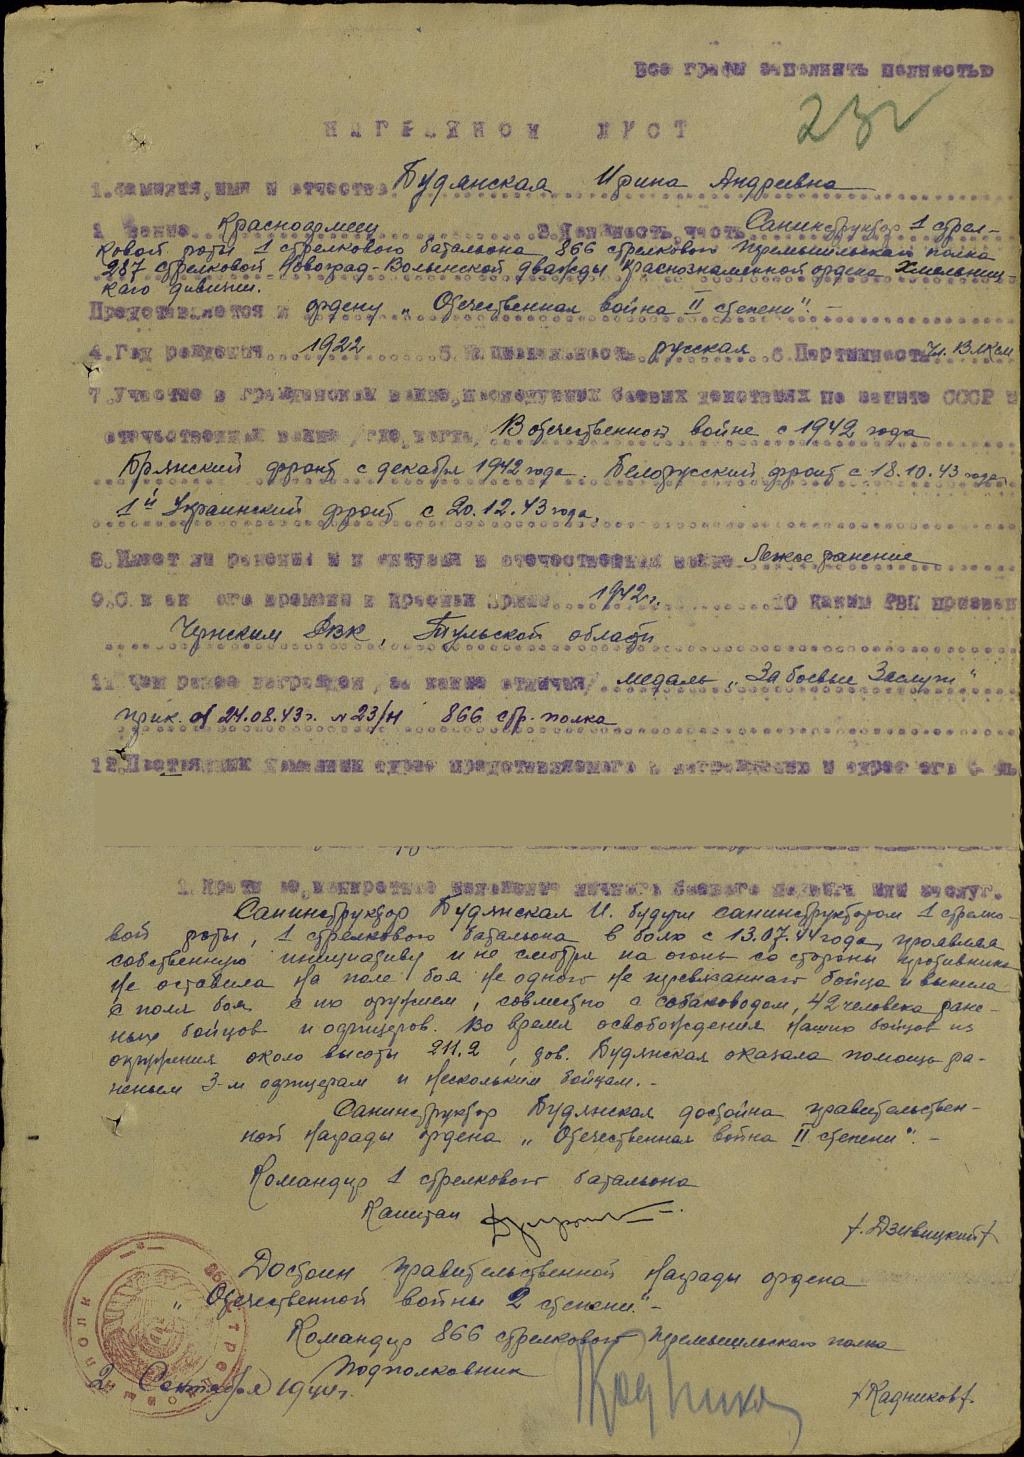 Все графы заполнять полностью
232
НАГРАДНОЙ ЛИСТ
1. Фамилия, имя и отчество Будянская Ирина Андреевна
2. Звание Красноармеец 3. Должность, часть Санинструктор 1 стрел-
ковой роты 1 стрелкового батальона 866 стрелкового Перемышльского полка
287 стрелковой Новоград-Волынской дважды Краснознаменной ордена Хмельниц-
каго дивизии.
Представляется к ордену „Отечественная война II степени". -
4. Год рождения 1922 5. Национальность русская 6. Партийность Чл. ВЛКСМ
7. Участие в гражданской войне, последующих боевых действиях по защите СССР и
отечественной войне /где, когда/ В отечественной войне с 1942 года
Брянский фронт с декабря 1942 года. Белорусский фронт с 18.10.43 года
1й Украинский фронт с 20.12.43 года.
8. Имеет ли ранения и контузии в отечественной войне Легкое ранение
9. С какого времени в Красной Армии 1942 г. 10 Каким РВК призван
Чернским РВК, Тульской области
11 Чем ранее награжден, за какие отличия медаль „За боевые Заслуги"
прик. от 24.08.43 г. №23/н 866 стр. полка
12. Постоянный домашний адрес представляемого к награждению и адрес его семьи
1. Краткое, конкретное изложение личного боевого подвига или заслуг.
Санинструктор Будянская И. будучи санинструктором 1 стрелко-
вой роты, 1 стрелкового батальона в бою с 13.07.44 года, проявляя
собственную инициативу и не смотря на огонь со стороны противника
Не оставила на поле боя не одного не перевязанного бойца и вынесла
с поля боя с их оружием, совместно с собаководом, 42 человека ране-
ных бойцов и офицеров. Во время освобождения наших бойцов из
окружения около высоты 211.2, тов. Будянская оказала помощь ра-
неным 3-м офицерам и нескольким бойцам. -
Санинструктор Будянская достойна правительствен-
ной награды ордена „Отечественная война II степени". -
Командир 1 стрелкового батальона
Капитан
/Дзивицкий/
Достоин правительственной награды ордена
„Отечественной войны 2 степени". -
Командир 866 стрелкового Перемышльского полка
Подполковник
/Кадников/.
2 Сентября 1944 г.